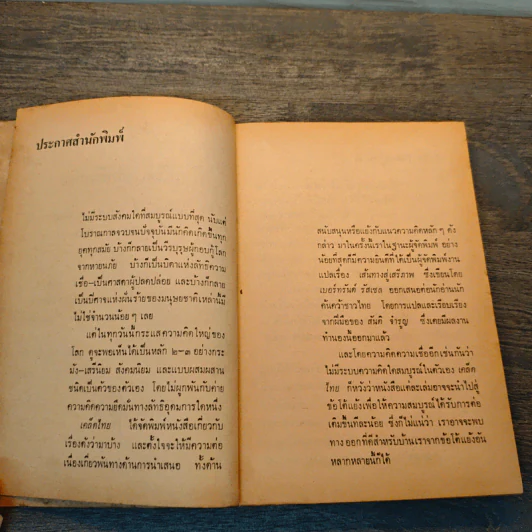 ประกาศสำนักพิมพ์
ไม่มีระบบสังคมใดที่สมบูรณ์แบบที่สุด นับแต่
โบราณกาลจวบจนปัจจุบันมีนักคิดเกิดขึ้นทุก
ยุคทุกสมัย บ้างก็กลายเป็นวีรบุรุษผู้กอบกู้โลก
จากหายนภัย บ้างก็เป็นบิดาแห่งลัทธิความ
เชื่อ–เป็นศาสดาผู้ปลดปล่อย และบ้างก็กลาย
เป็นบิดาแห่งฝันร้ายของมนุษยชาติเหล่านี้มี
ไม่ใช่จำนวนน้อยๆ เลย
แต่ในทุกวันนี้กระแสความคิดใหญ่ของ
โลก ดูจะพอเห็นได้เป็นหลัก ๒–๓ อย่างกระ
มัง–เสรีนิยม สังคมนิยม และแบบผสมผสาน
ชนิดเป็นตัวของตัวเอง โดยไม่ผูกพันกับค่าย
ความคิดความยึดมั่นทางลัทธิอุดมการใดหนึ่ง
เคล็ดไทย ได้จัดพิมพ์หนังสือเกี่ยวกับ
เรื่องดังว่ามาบ้าง และตั้งใจจะให้มีความต่อ
เนื่องเกี่ยวพันทางด้านการนำเสนอ ทั้งด้าน
สนับสนุนหรือแย้งกับแนวความคิดหลักๆ ดัง
กล่าว มาในครั้งนี้เราในฐานะผู้จัดพิมพ์ อย่าง
น้อยที่สุดก็มีความยินดีที่ได้เป็นผู้จัดพิมพ์งาน
แปลเรื่อง เส้นทางสู่เสรีภาพ ซึ่งเขียนโดย
เบอร์ทรันด์ รัสเซล ออกเสนอต่อนักอ่านนัก
ค้นคว้าชาวไทย โดยการแปลและเรียบเรียง
จากฝีมือของ สันติ จำรูญ ซึ่งเคยมีผลงาน
ทำนองนี้ออกมาแล้ว
และโดยความคิดความเชื่ออีกเช่นกันว่า
ไม่มีระบบความคิดใดสมบูรณ์ในตัวเอง เคล็ด
ไทย ก็หวังว่าหนังสือแต่ละเล่มอาจจะนำไปสู่
ข้อโต้แย้งเพื่อให้ความสมบูรณ์ได้รับการต่อ
เติมขึ้นทีละน้อย ซึ่งก็ไม่แน่ว่า เราอาจจะพบ
ทางออกที่ดีสำหรับบ้านเราจากข้อโต้แย้งอัน
หลากหลายนี้ก็ได้